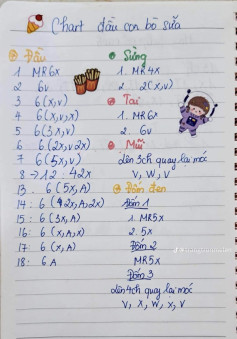 Chart đầu con bò sữa
Đầu
1. MR6X
2. 6V
3. 6(X,V)
4. 6(X,V,X)
5. 6(3X,V)
6. 6(2X,V,2X)
7. 6(5X,V)
8 → 12: 42X
13. 6(5X,A)
14: 6(2X,A,2X)
15: 6(3X,A)
16: 6(X,A,X)
17: 6(X,A)
18: 6A
Sừng
1. MR4X
2. 2(X,V)
Tai
1. MR6X
2. 6V
Mũi
lên 3ch quay lại móc
V, W, V
Đốm đen
Đốm 1
1. MR5X
2. 5X
Đốm 2
MR5X
Đốm 3
lên 4ch quay lại móc
V, X, W, X, V